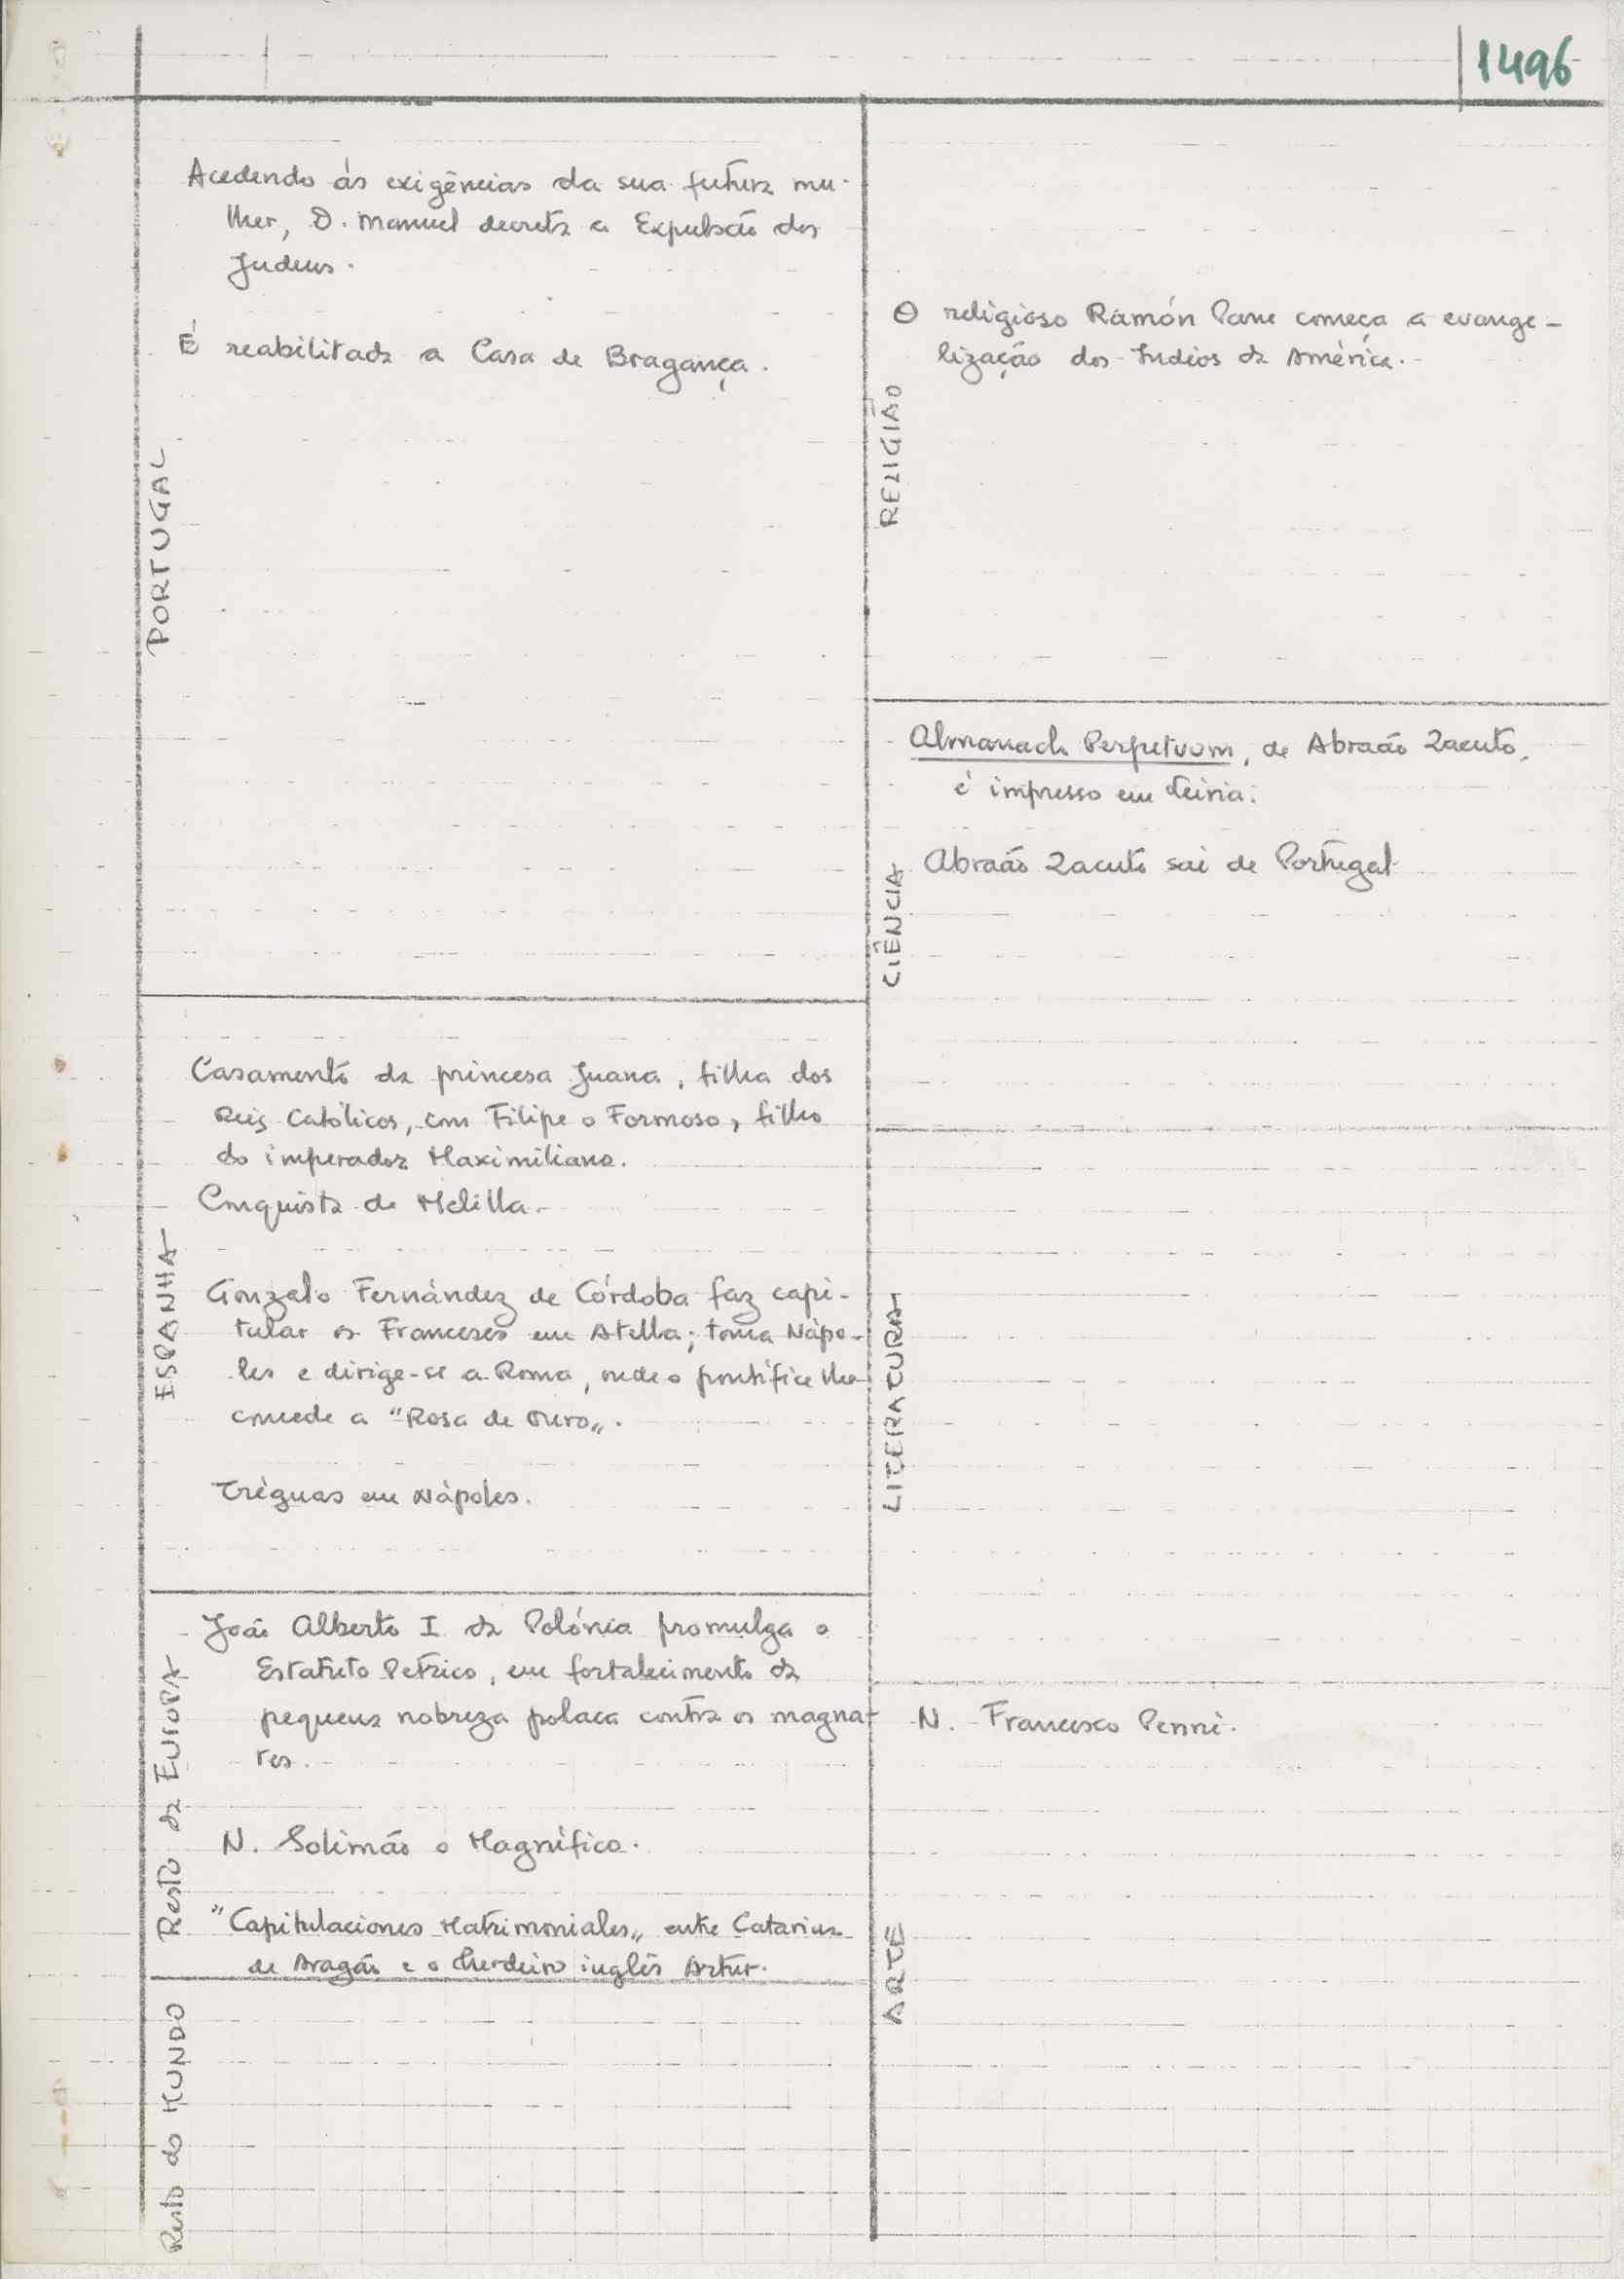 1496
PORTUGAL
Acedendo ás exigências da sua futura mu-
lher, D. Manuel decreta a Expulsão dos
Judeus.
É reabilitada a Casa de Bragança.
ESPANHA
Casamento da princesa Juana, filha dos
Reis Católicos, com Filipe o Formoso, filho
do imperador Maximiliano.
Conquista de Melilla.
Gonzalo Fernández de Córdoba faz capi-
tular os Franceses em Atella; toma Nápo-
les e dirige-se a Roma, onde o pontífice lhe
concede a "Rosa de Ouro".
Tréguas em Nápoles.
Resto da EUROPA
João Alberto I da Polónia promulga o
Estatuto Petrico, em fortalecimento da
pequena nobreza polaca contra os magna-
tes.
N. Solimão o Magnífico.
"Capitulaciones Matrimoniales" entre Catarina
de Aragão e o herdeiro inglês Artur.
Resto do MUNDO
RELIGIÃO
O religioso Ramón Pane começa a evange-
lização dos Indios da América.
CIÊNCIA
Almanach Perpetuom, de Abraão Zacuto,
é impresso em Leiria.
Abraão Zacuto sai de Portugal
LITERATURA
ARTE
N. Francesco Penni.